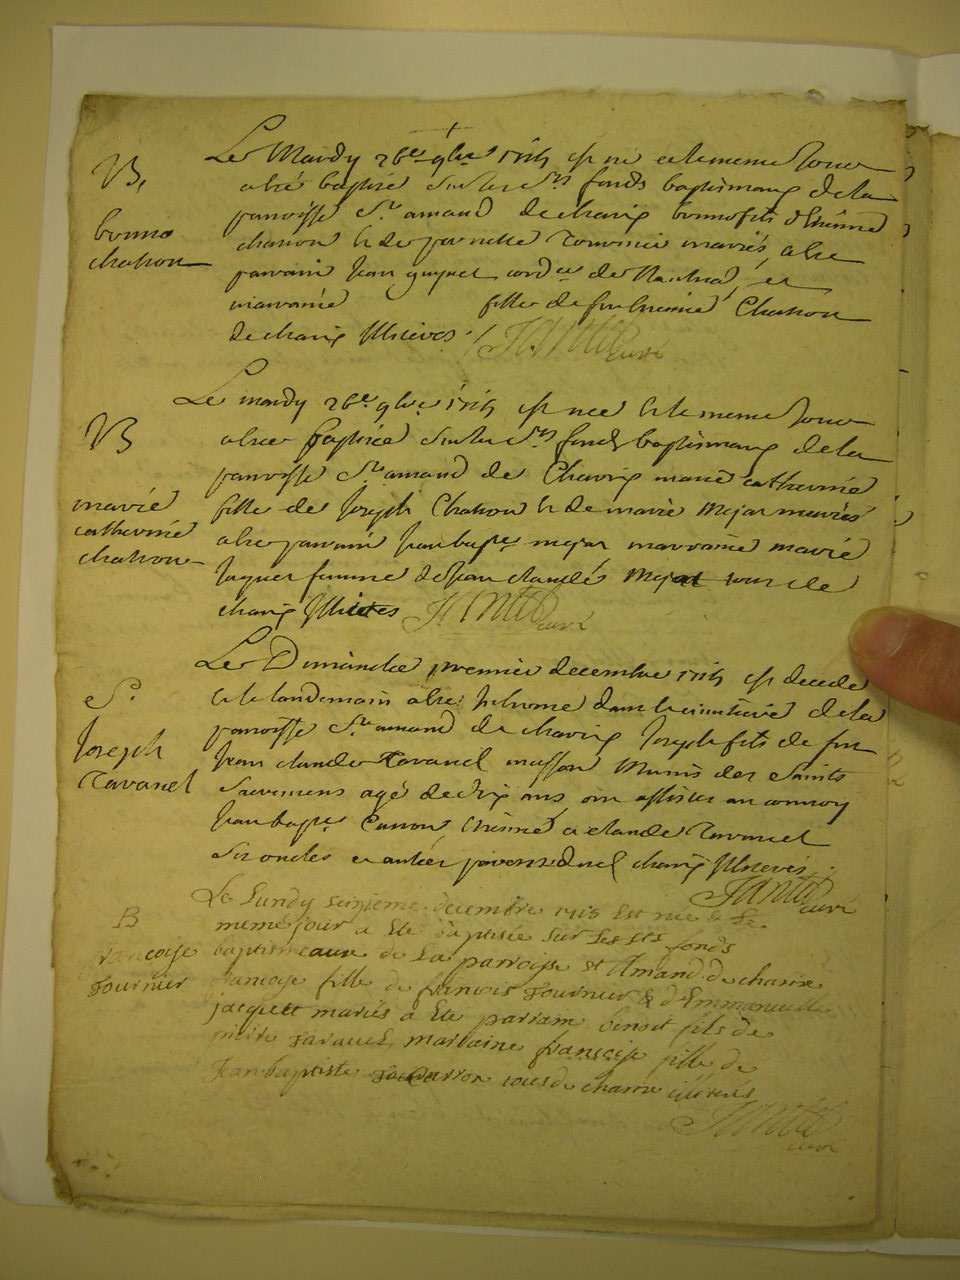 B.
bonno
chasson
Le Mardy 26e 9bre 1715 est né et le meme Jour
a esté baptisé sur les Sts fonds baptismaux de la
paroisse St amand de charix bonno fils d'Etienne
chasson et de pernette Tournier mariés, a esté
parrain Jean guynet de Nantua, et
marraine fille de feu Chasson
de charix Illiterés
curé
B
marie
catherine
chasson
Le mardy 26e 9bre 1715 est née et le meme Jour
a esté baptisée sur les Sts fonds baptismaux de la
paroisse St amand de Charix marie catherine
fille de Joseph Chasson et de marie Mejat mariés
a esté parrain Jean bapte mejat marraine marie
Jaquet femme de Jean claude Mejat tous de
charix Illiterés curé
S.
Joseph
Tavanel
Le Dimanche premier decembre 1715 est decedé
et le landemain a esté Inhumé dans le cimetiere de la
paroisse St amand de charix Joseph fils de feu
Jean claude Tavanel masson Munis des Saints
Sacremens agé de dix ans ont assisté au convoy
Jean bapte Carron, Etienne et claude Tavanel
Ses oncles et autres de charix Illiterés.
curé
B
francoise
fournier
Le Lundy seizieme decembre 1715 Est née & Le
meme jour a Eté baptisée sur Les sts fonds
baptismeaux de La parroisse st Amand de charix
francoise fille de francois fournier & d'Emmanuelle
jaquett mariés a Eté parrain benoit fils de
pierre Tavanel, marraine francoise fille de
Jean baptiste Carron tous de charix illiterés
curé